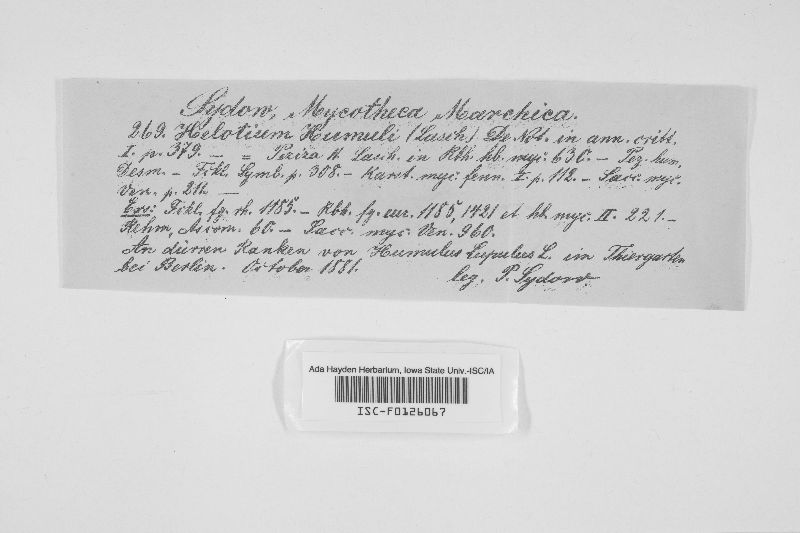 Sydow, Mycotheca Marchica.
269. Helotium Humuli (Lasch.) De Not. in ann. critt.
I. p. 379. — = Peziza H. Lasch. in Rbh. hb. myc. 630. — Pez. hum.
Desm. — Fckl. Symb. p. 308. — Karst. myc. fenn. I. p. 112. — Sacc. myc.
Ven. p. 211. —
Exs: Fckl. fg. rh. 1185. — Rbh. fg. eur. 1185, 1421 et hb. myc. II. 221. —
Rehm, Ascom. 60. — Sacc. myc. Ven. 960.
An dürren Ranken von Humulus Lupulus L. im Thiergarten
bei Berlin. October 1881.
leg. P. Sydow.
Ada Hayden Herbarium, Iowa State Univ.-ISC/IA
ISC-F0126067